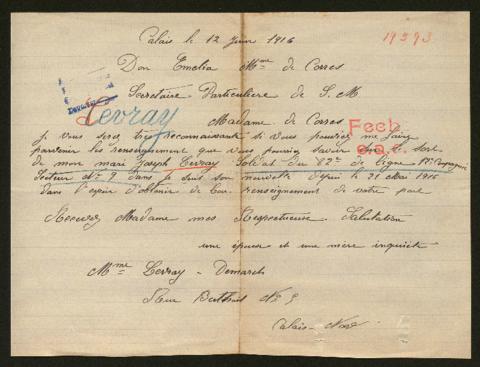 Calais le 12 Juin 1916
19593
Don Emelia Mme de Corres
Secretaire Particuliere de S. M
Levray
Madame de Corres
je vous serez très reconnaissante si vous pourriez me faire
parvenir les renseignement que vous pourriez savoir sur le sort
de mon mari Joseph Levray Soldat du ligne
Secteur No 9 dans suis son nouvelle depuis le 21 Mai 1916
dans l'espoir d'obtenir de bon renseignement de votre part
Recevez Madame mes Respectueuse Salutation
une épouse et une mère inquiète
Mme Levray - Demarch
Rue No 9
Calais - Nord